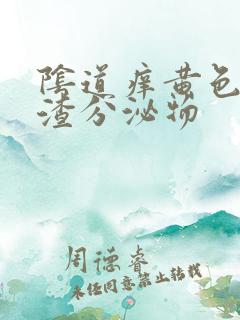 陰道痒黄色
渣分泌物
周德睿
未经同意禁止转载